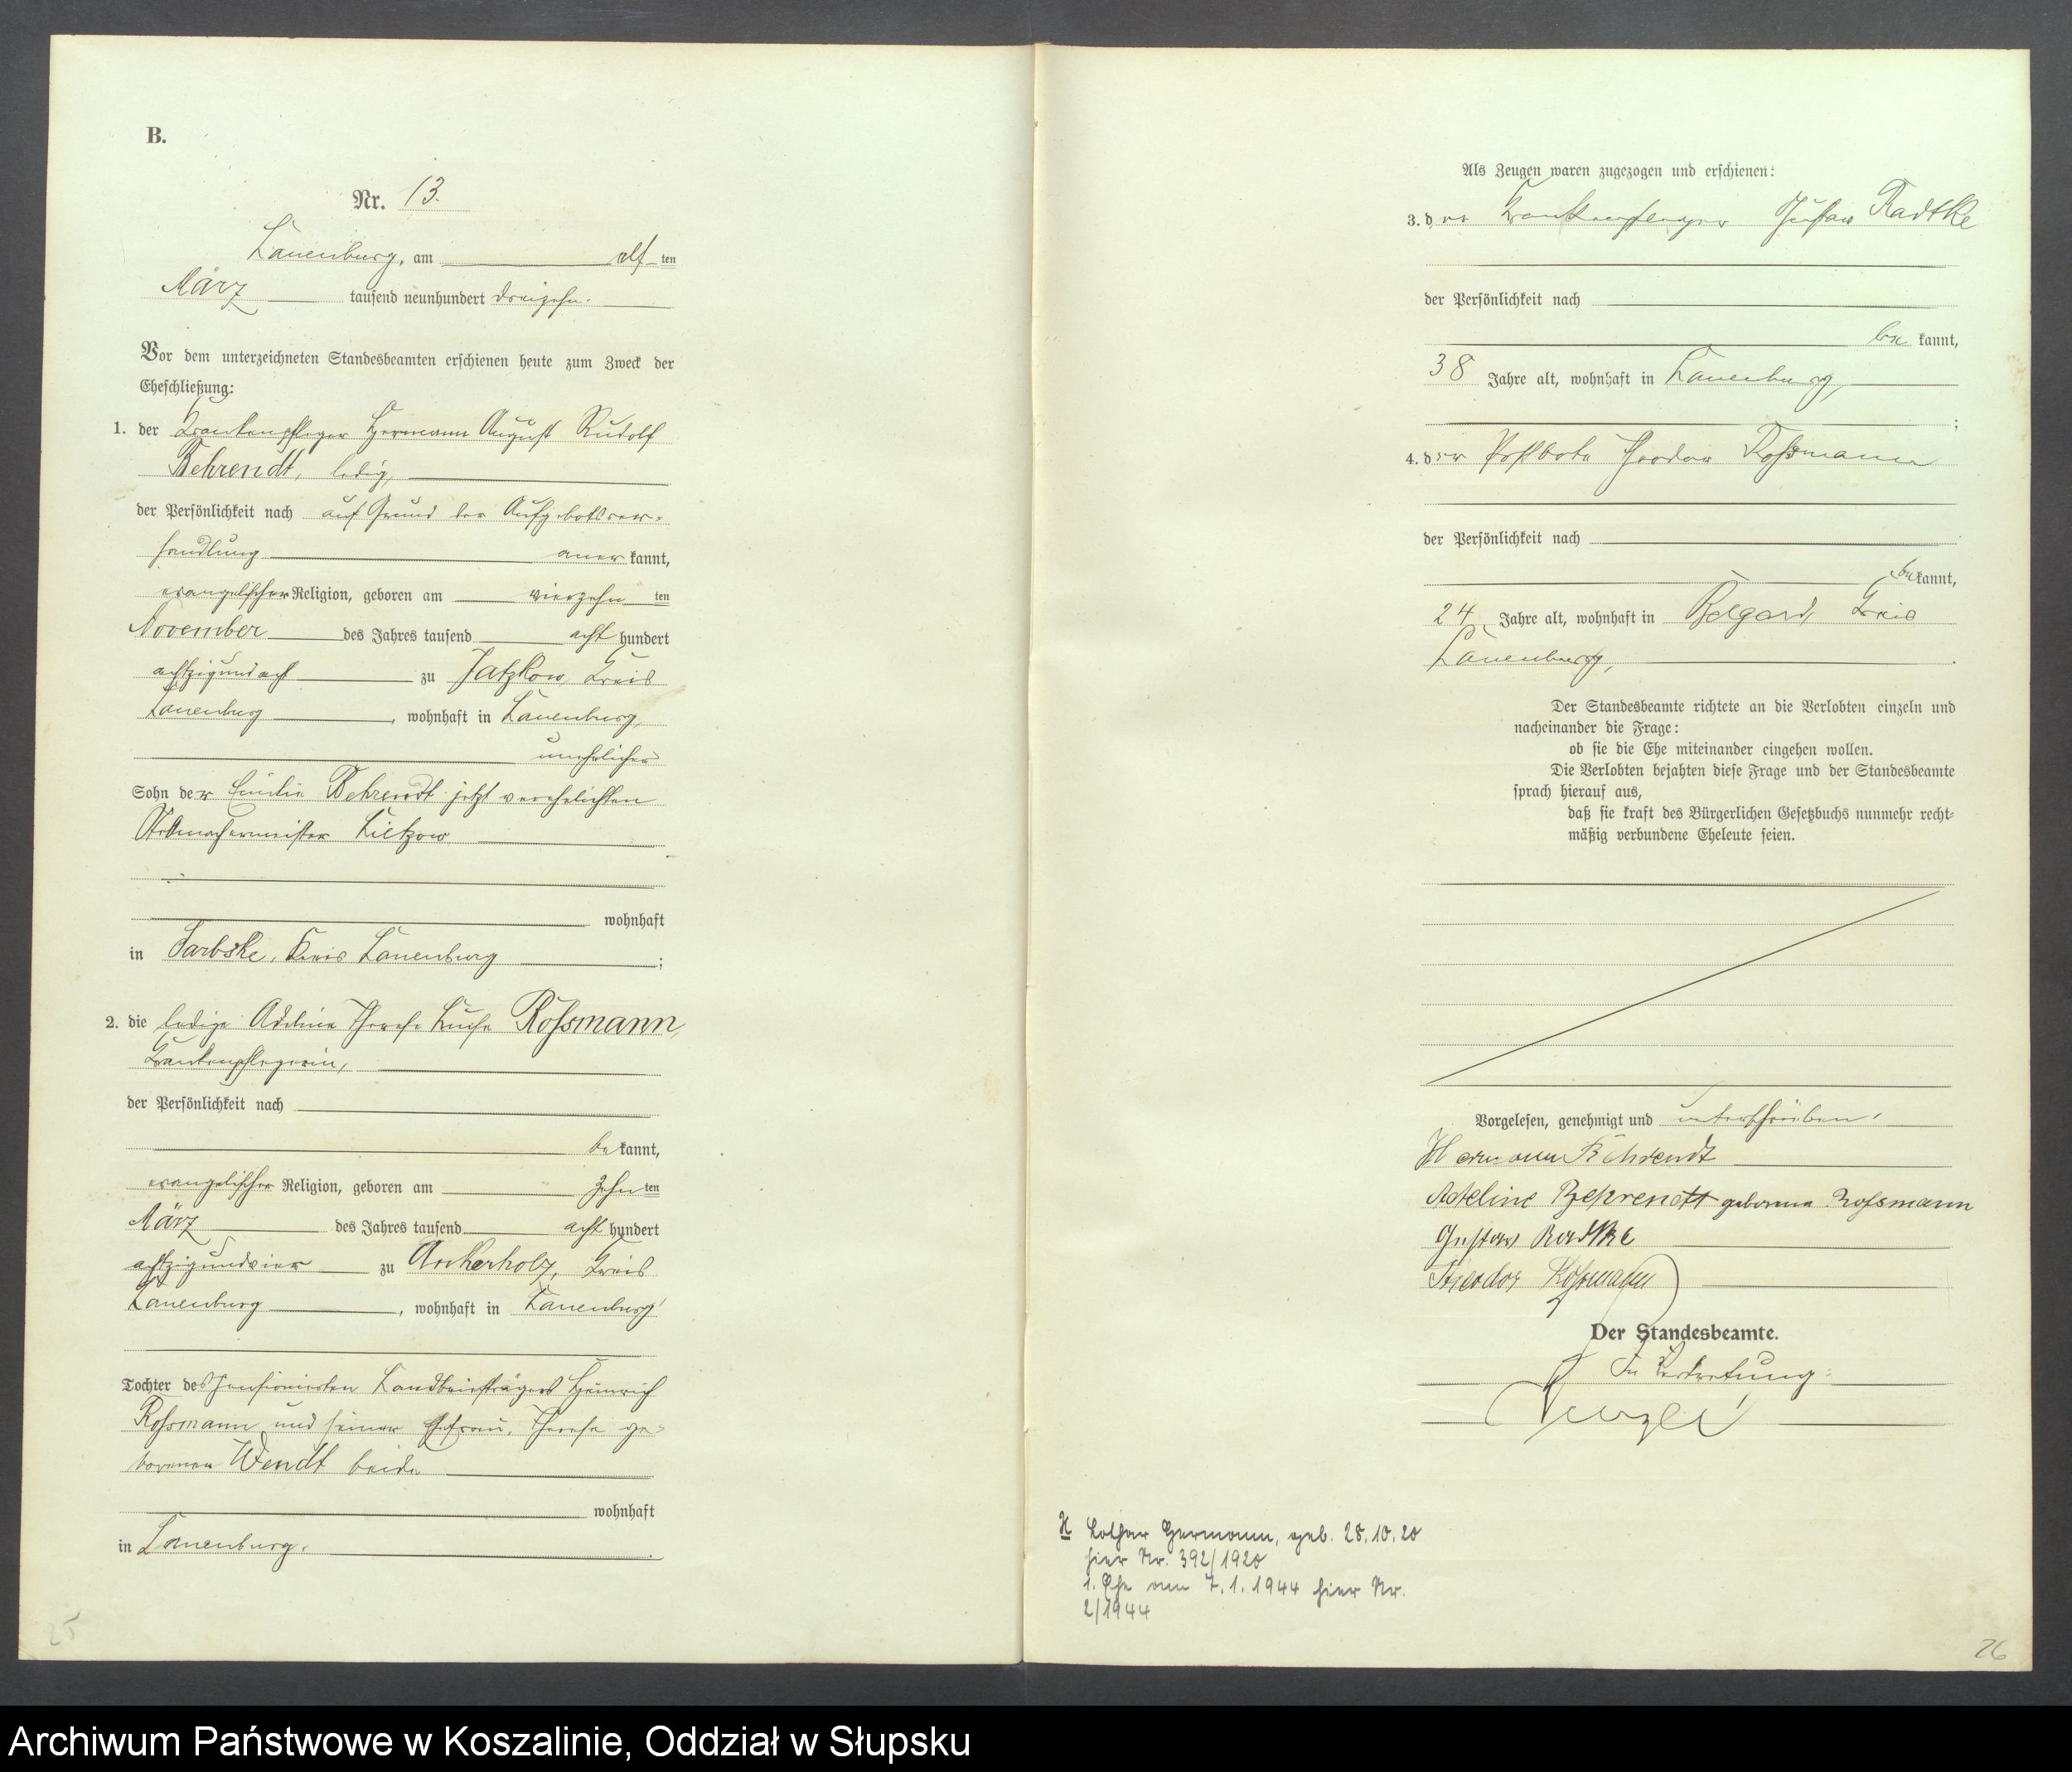 B.
Nr. 13.
Lauenburg, am elf ten
März tausend neunhundert dreizehn.
Vor dem unterzeichneten Standesbeamten erschienen heute zum Zweck der
Eheschließung:
1. der Krankenpfleger Hermann August Rudolf
Behrendt, ledig,
der Persönlichkeit nach auf Grund der Aufgebotsver-
handlung aner kannt,
evangelischer Religion, geboren am vierzehn ten
November des Jahres tausend acht hundert
achtzigundacht zu Jatzkow, Kreis
Lauenburg, wohnhaft in Lauenburg,
unehelicher
Sohn der Emilie Behrendt jetzt verehelichten
Stellmachermeister Lietzow
wohnhaft
in Sarbske, Kreis Lauenburg;
2. die ledige Adeline Therese Luise Roßmann,
Krankenpflegerin,
der Persönlichkeit nach
be kannt,
evangelischer Religion, geboren am zehn ten
März des Jahres tausend acht hundert
achtzigundvier zu Ankerholz, Kreis
Lauenburg, wohnhaft in Lauenburg,
Tochter des pensionierten Landbriefträgers Heinrich
Roßmann und seiner Ehefrau, Therese ge-
borenen Wendt beide
wohnhaft
in Lauenburg.
25
Als Zeugen waren zugezogen und erschienen:
3. der Krankenpfleger Gustav Radtke
der Persönlichkeit nach
be kannt,
38 Jahre alt, wohnhaft in Lauenburg,
;
4. der Postbote Theodor Roßmann
der Persönlichkeit nach
be kannt,
24 Jahre alt, wohnhaft in Belgard, Kreis
Lauenburg,
Der Standesbeamte richtete an die Verlobten einzeln und
nacheinander die Frage:
ob sie die Ehe miteinander eingehen wollen.
Die Verlobten bejahten diese Frage und der Standesbeamte
sprach hierauf aus,
daß sie kraft des Bürgerlichen Gesetzbuchs nunmehr recht-
mäßig verbundene Eheleute seien.
Vorgelesen, genehmigt und unterschrieben.
Hermann Behrendt
Adeline Behrendt geborene Roßmann
Gustav Radtke
Theodor Roßmann
Der Standesbeamte.
In Vertretung:
H Lothar Hermann, geb. 28.10.20
hier Nr. 392/1920
1. Ehe am 7.1.1944 hier Nr.
2/1944
26
Archiwum Państwowe w Koszalinie, Oddział w Słupsku